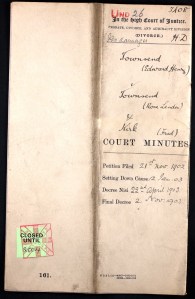 In the High Court of Justice.
PROBATE, DIVORCE, AND ADMIRALTY DIVISION
(DIVORCE.)
HD
Townsend
(Edward Henry)
v
Townsend
(Rose Louise)
&
Kirk
(Fred)
COURT MINUTES
Petition Filed 21st Nov. 1902
Setting Down Cause
Decree Nisi 22nd April 1903
Final Decree 2 Nov. 1903
CLOSED
UNTIL
161.